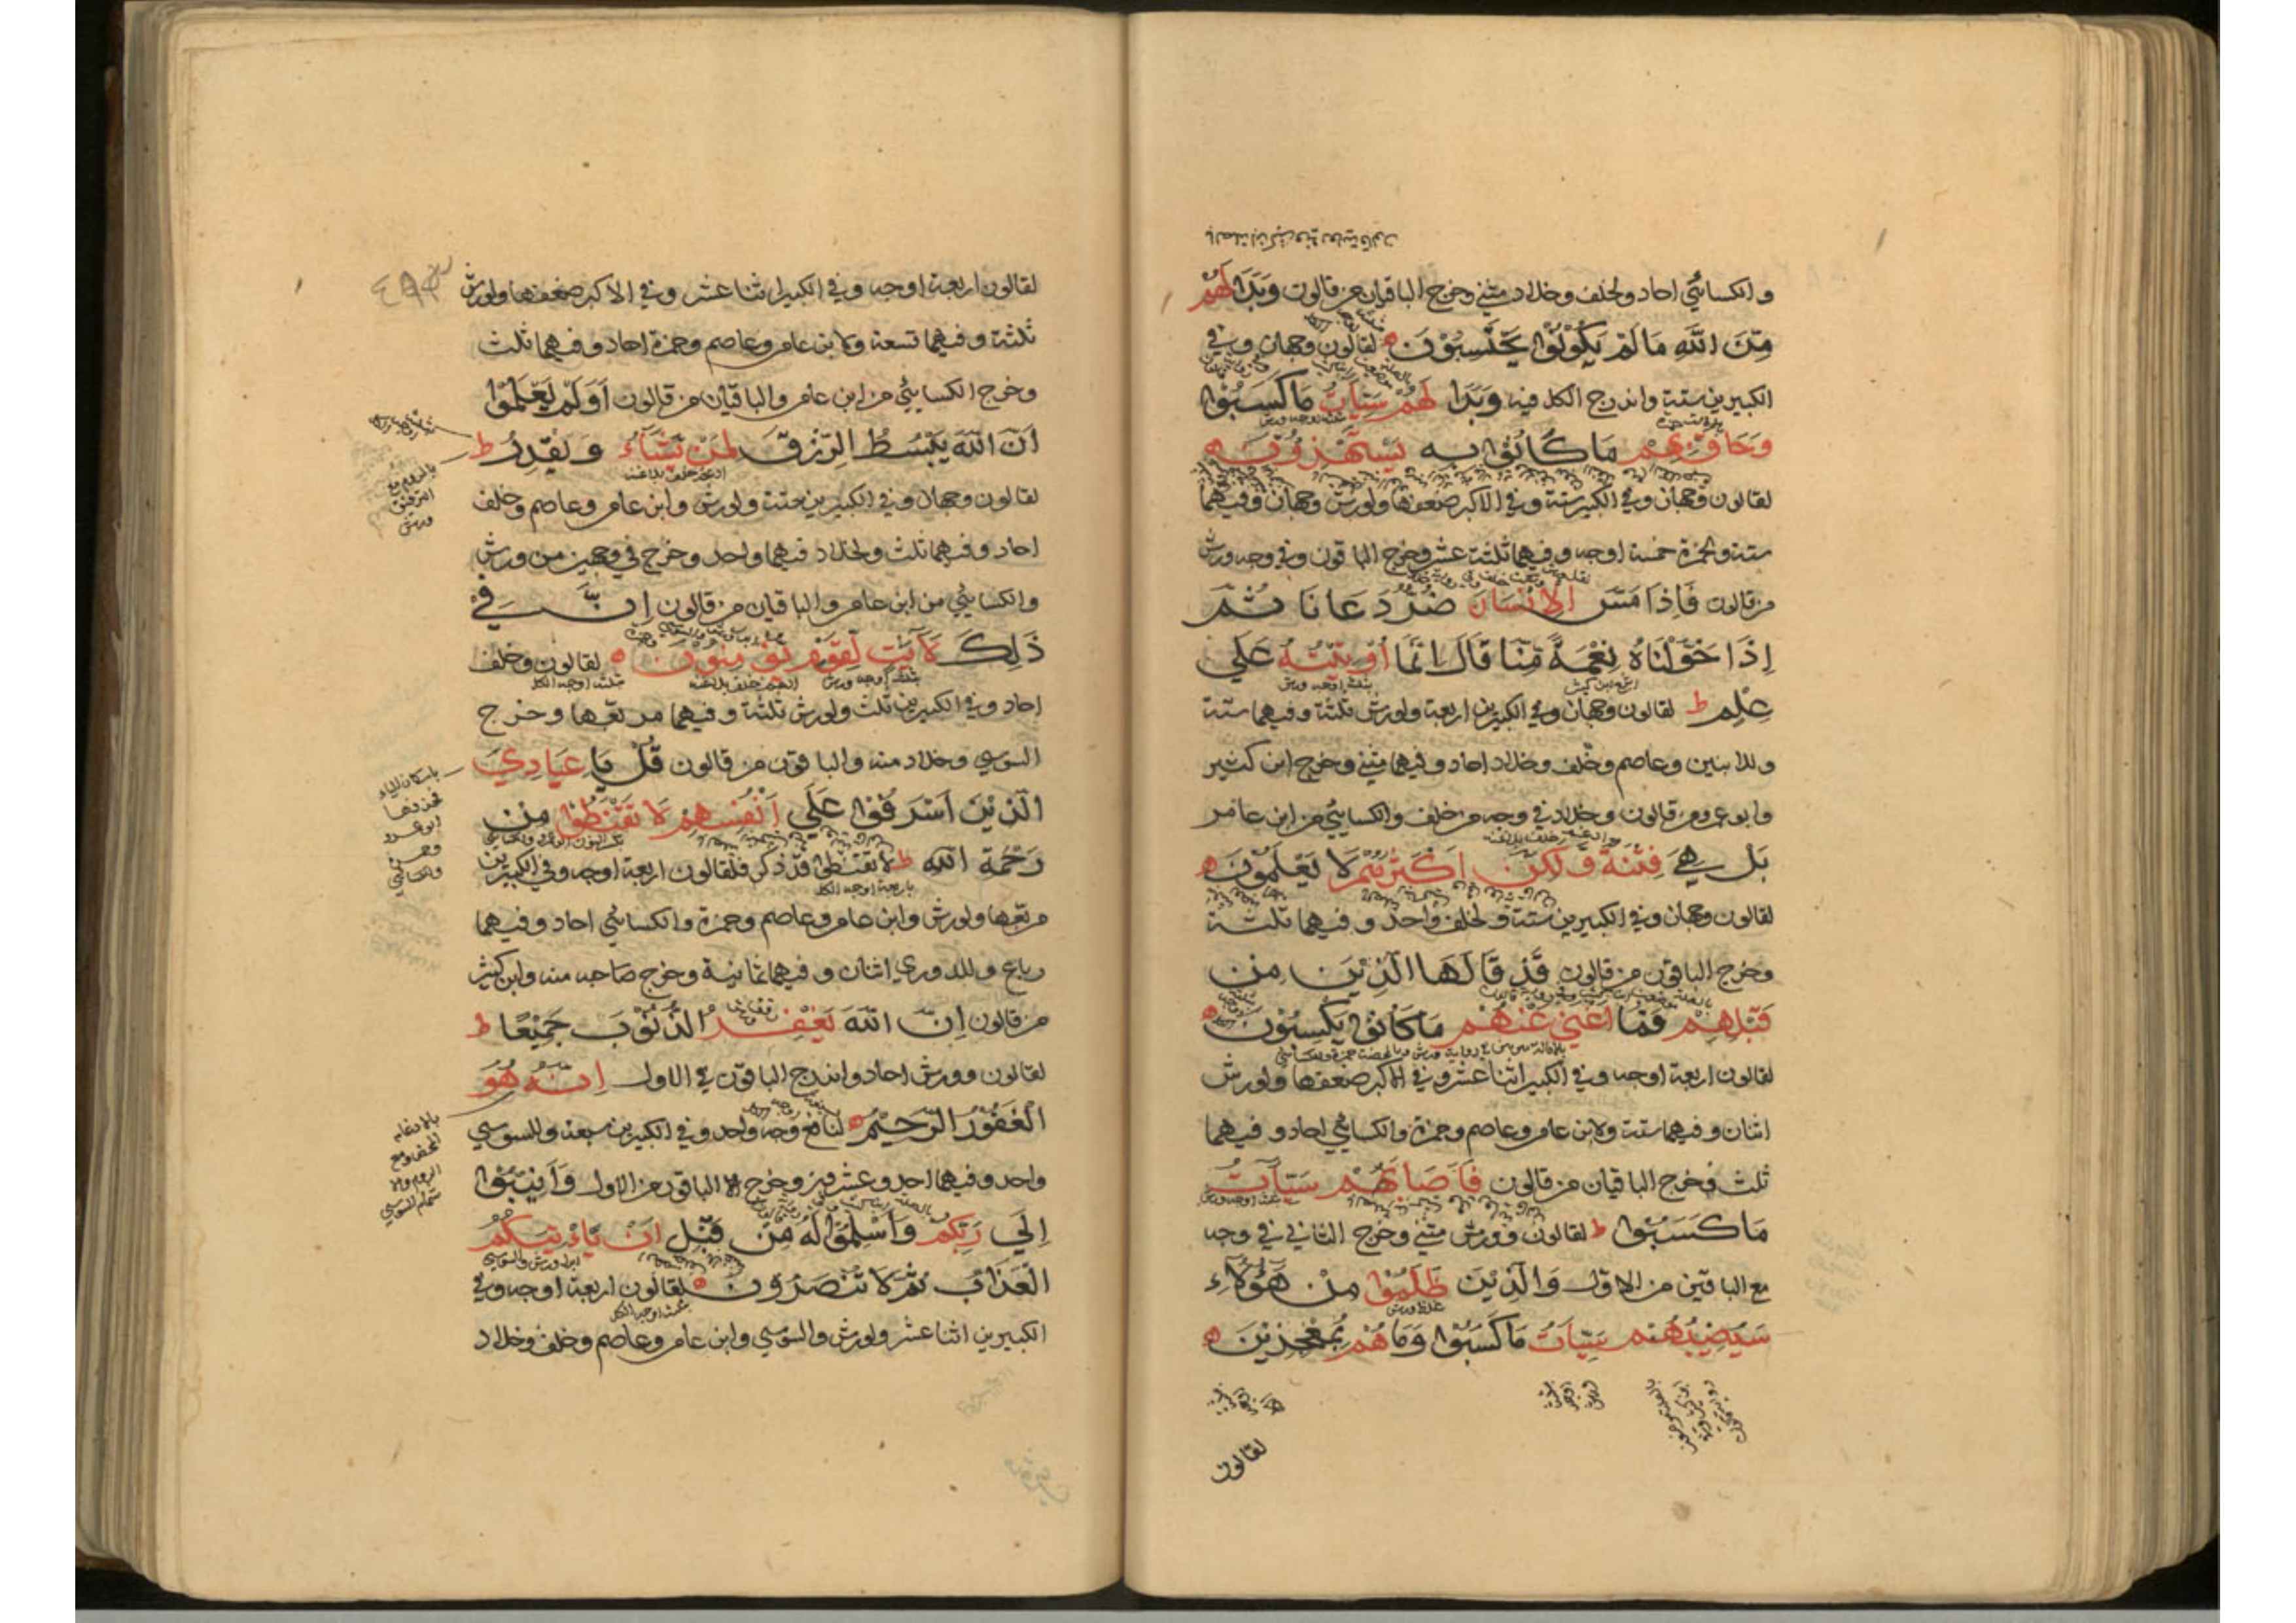 والكسائي احاد ولخلف وخلاد مثنى وخرج الباقيان من قالون وَبَدَا لَهُمْ
مِنَ اللهِ مَا لَمْ يَكُونُوا يَحْتَسِبُونَ لقالون وجهان وفي
الكبيرين ستة واندرج الكل فيه وَبَدَا لَهُمْ سَيِّاٰتُ مَا كَسَبُوا
وَحَاقَ بِهِمْ مَا كَانُوا بِهِ يَسْتَهْزِؤُنَ
لقالون وجهان وفي الكبير ستة وفي الاكبر ضعفها ولورش وجهان وفيهما
ستة ولحمزة خمسة اوجه وفيهما ثلثة عشر وخرج الباقون وفي وجه ورش
من قالون فَاِذَا مَسَّ الْاِنْسَانَ ضُرٌّ دَعَانَا ثُمَّ
اِذَا خَوَّلْنَاهُ نِعْمَةً مِنَّا قَالَ اِنَّمَا اُوتِيتُهُ عَلٰي
عِلْمٍ ط لقالون وجهان وفي الكبيرين اربعة ولورش ثلثة وفيهما ستة
وللابنين وعاصم وخلف وخلاد احاد وفيهما مثنى وخرج ابن كثير
وابو عمرو من قالون وخلاد في وجه من خلف والكسائي من ابن عامر
بَلْ هِيَ فِتْنَةٌ وَلٰكِنَّ اَكْثَرَهُمْ لَا يَعْلَمُونَ
لقالون وجهان وفي الكبيرين ستة ولخلف واحد وفيهما ثلثة
وخرج الباقون من قالون قَدْ قَالَهَا الَّذِينَ مِنْ
قَبْلِهِمْ فَمَا اَغْنٰي عَنْهُمْ مَا كَانُوا يَكْسِبُونَ
لقالون اربعة اوجه وفي الكبير اثنا عشر وفي الاكبر ضعفها ولورش
اثنان وفيهما ستة ولابن عامر وعاصم وحمزة والكسائي احاد وفيهما
ثلث وخرج الباقيان من قالون فَاَصَابَهُمْ سَيِّاٰتُ
مَا كَسَبُوا ط لقالون وورش مثنى وخرج الثاني في وجه
مع الباقين من الاول وَالَّذِينَ ظَلَمُوا مِنْ هٰؤُلَاءِ
سَيُصِيبُهُمْ سَيِّاٰتُ مَا كَسَبُوا وَمَا هُمْ بِمُعْجِزِينَ
لقالون
لقالون اربعة اوجه وفي الكبير اثنا عشر وفي الاكبر ضعفها ولورش
ثلثة وفيهما تسعة ولابن عامر وعاصم وحمزة احاد وفيهما ثلث
وخرج الكسائي من ابن عامر والباقيان من قالون اَوَلَمْ يَعْلَمُوا
اَنَّ اللهَ يَبْسُطُ الرِّزْقَ لِمَنْ يَشَاءُ وَيَقْدِرُ ط
لقالون وجهان وفي الكبيرين ستة ولورش وابن عامر وعاصم وخلف
احاد وفيهما ثلث ولخلاد فيهما واحد وخرج في وجهين من ورش
والكسائي من ابن عامر والباقيان من قالون اِنَّ فِي
ذٰلِكَ لَاٰيٰتٍ لِقَوْمٍ يُؤْمِنُونَ لقالون وخلف
احاد وفي الكبيرين ثلث ولورش ثلثة وفيهما مربعها وخرج
السوسي وخلاد منه والباقون من قالون قُلْ يَا عِبَادِيَ
الَّذِينَ اَسْرَفُوا عَلٰي اَنْفُسِهِمْ لَا تَقْنَطُوا مِنْ
رَحْمَةِ اللهِ ط لا تقنطوا قد ذكر فلقالون اربعة اوجه وفي الكبيرين
مربعها ولورش وابن عامر وعاصم وحمزة والكسائي احاد وفيهما
رباع وللدوري اثنان وفيهما ثمانية وخرج صاحبه منه وابن كثير
من قالون اِنَّ اللهَ يَغْفِرُ الذُّنُوبَ جَمِيعًا ط
لقالون وورش احاد واندرج الباقون في الاول اِنَّهُ هُوَ
الْغَفُورُ الرَّحِيمُ لنافع وجه واحد وفي الكبيرين سبعة وللسوسي
واحد وفيهما احد وعشرين وخرج الباقون من الاول وَاَنِيبُوا
اِلٰي رَبِّكُمْ وَاَسْلِمُوا لَهُ مِنْ قَبْلِ اَنْ يَأْتِيَكُمُ
الْعَذَابُ ثُمَّ لَا تُنْصَرُونَ لقالون اربعة اوجه وفي
الكبيرين اثنا عشر ولورش والسوسي وابن عامر وعاصم وخلف وخلاد
بالروم مع
الترقيق
ورش
باسكان الياء
فحذفها
ابو عمرو
وحمزة
والكسائي